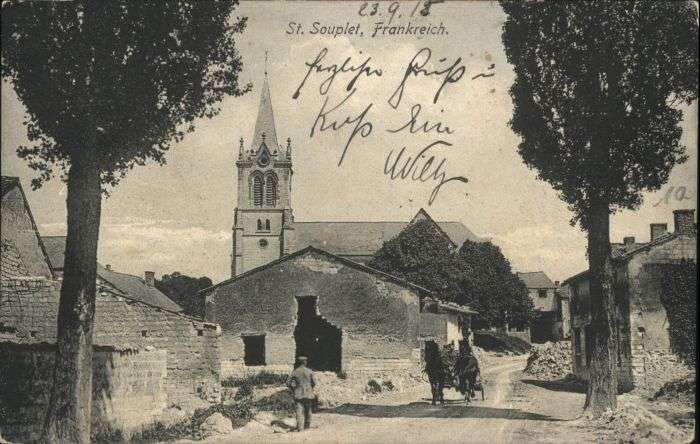 23.9.15
St. Souplet, Frankreich.
Herzliche Gruß u
Kuß Dein
Willy